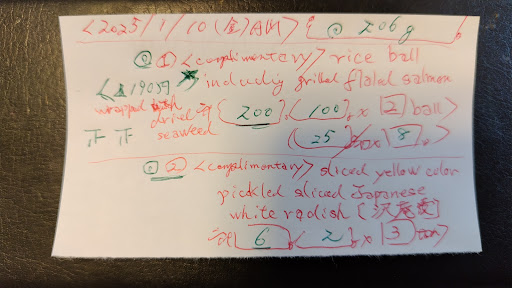 <2025/1/10(金)AM> 206g
① <complimentary> rice ball
including grilled flaked salmon
wrapped
dried
seaweed {200}.(100). x [2] ball>
正 正
(25 x [8].>
② <complimentary> sliced yellow color
pickled sliced Japanese
white radish [沢庵]
[6].(2). x [3]